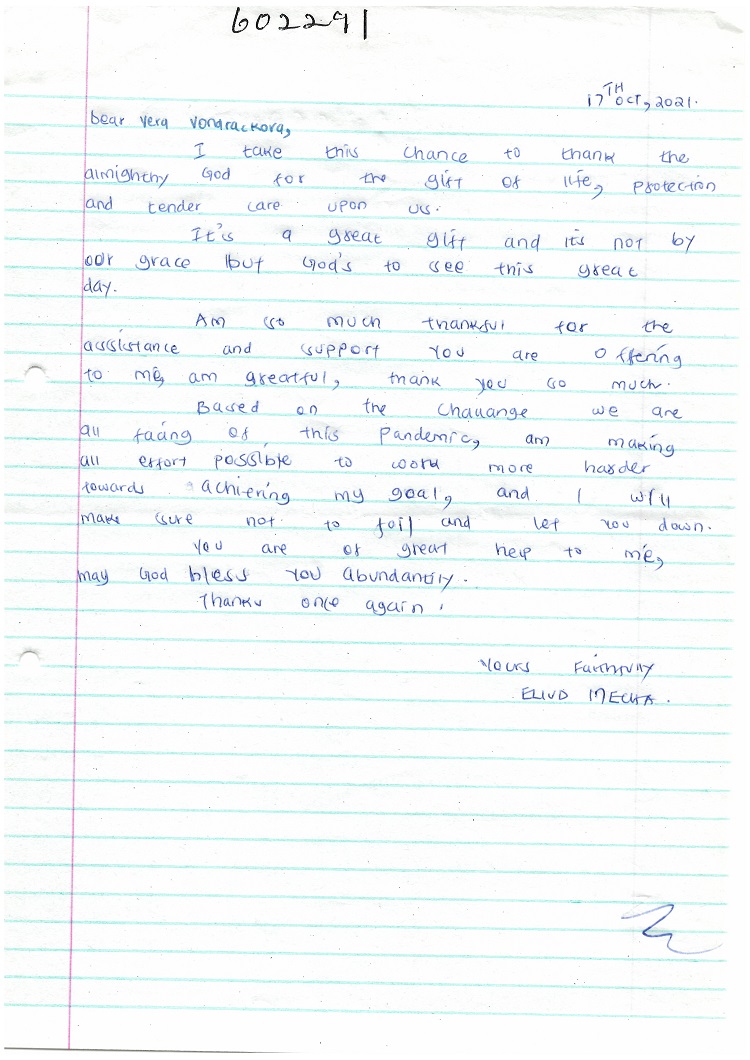 602291
17TH OCT, 2021.
Dear Vera Vondrackova,
I take this chance to thank the
almighty God for the gift of life, protection
and tender care upon us.
It's a great gift and its not by
our grace but God's to see this great
day.
Am so much thankful for the
assistance and support you are offering
to me, am greatful, thank you so much.
Based on the challange we are
all facing of this Pandemic, am making
all effort possible to work more harder
towards achiering my goal, and I will
make sure not to foil and let you down.
You are of great help to me,
may God bless you abundantly.
Thanks once again.
Yours Faithfully
ELIUD MECHA.